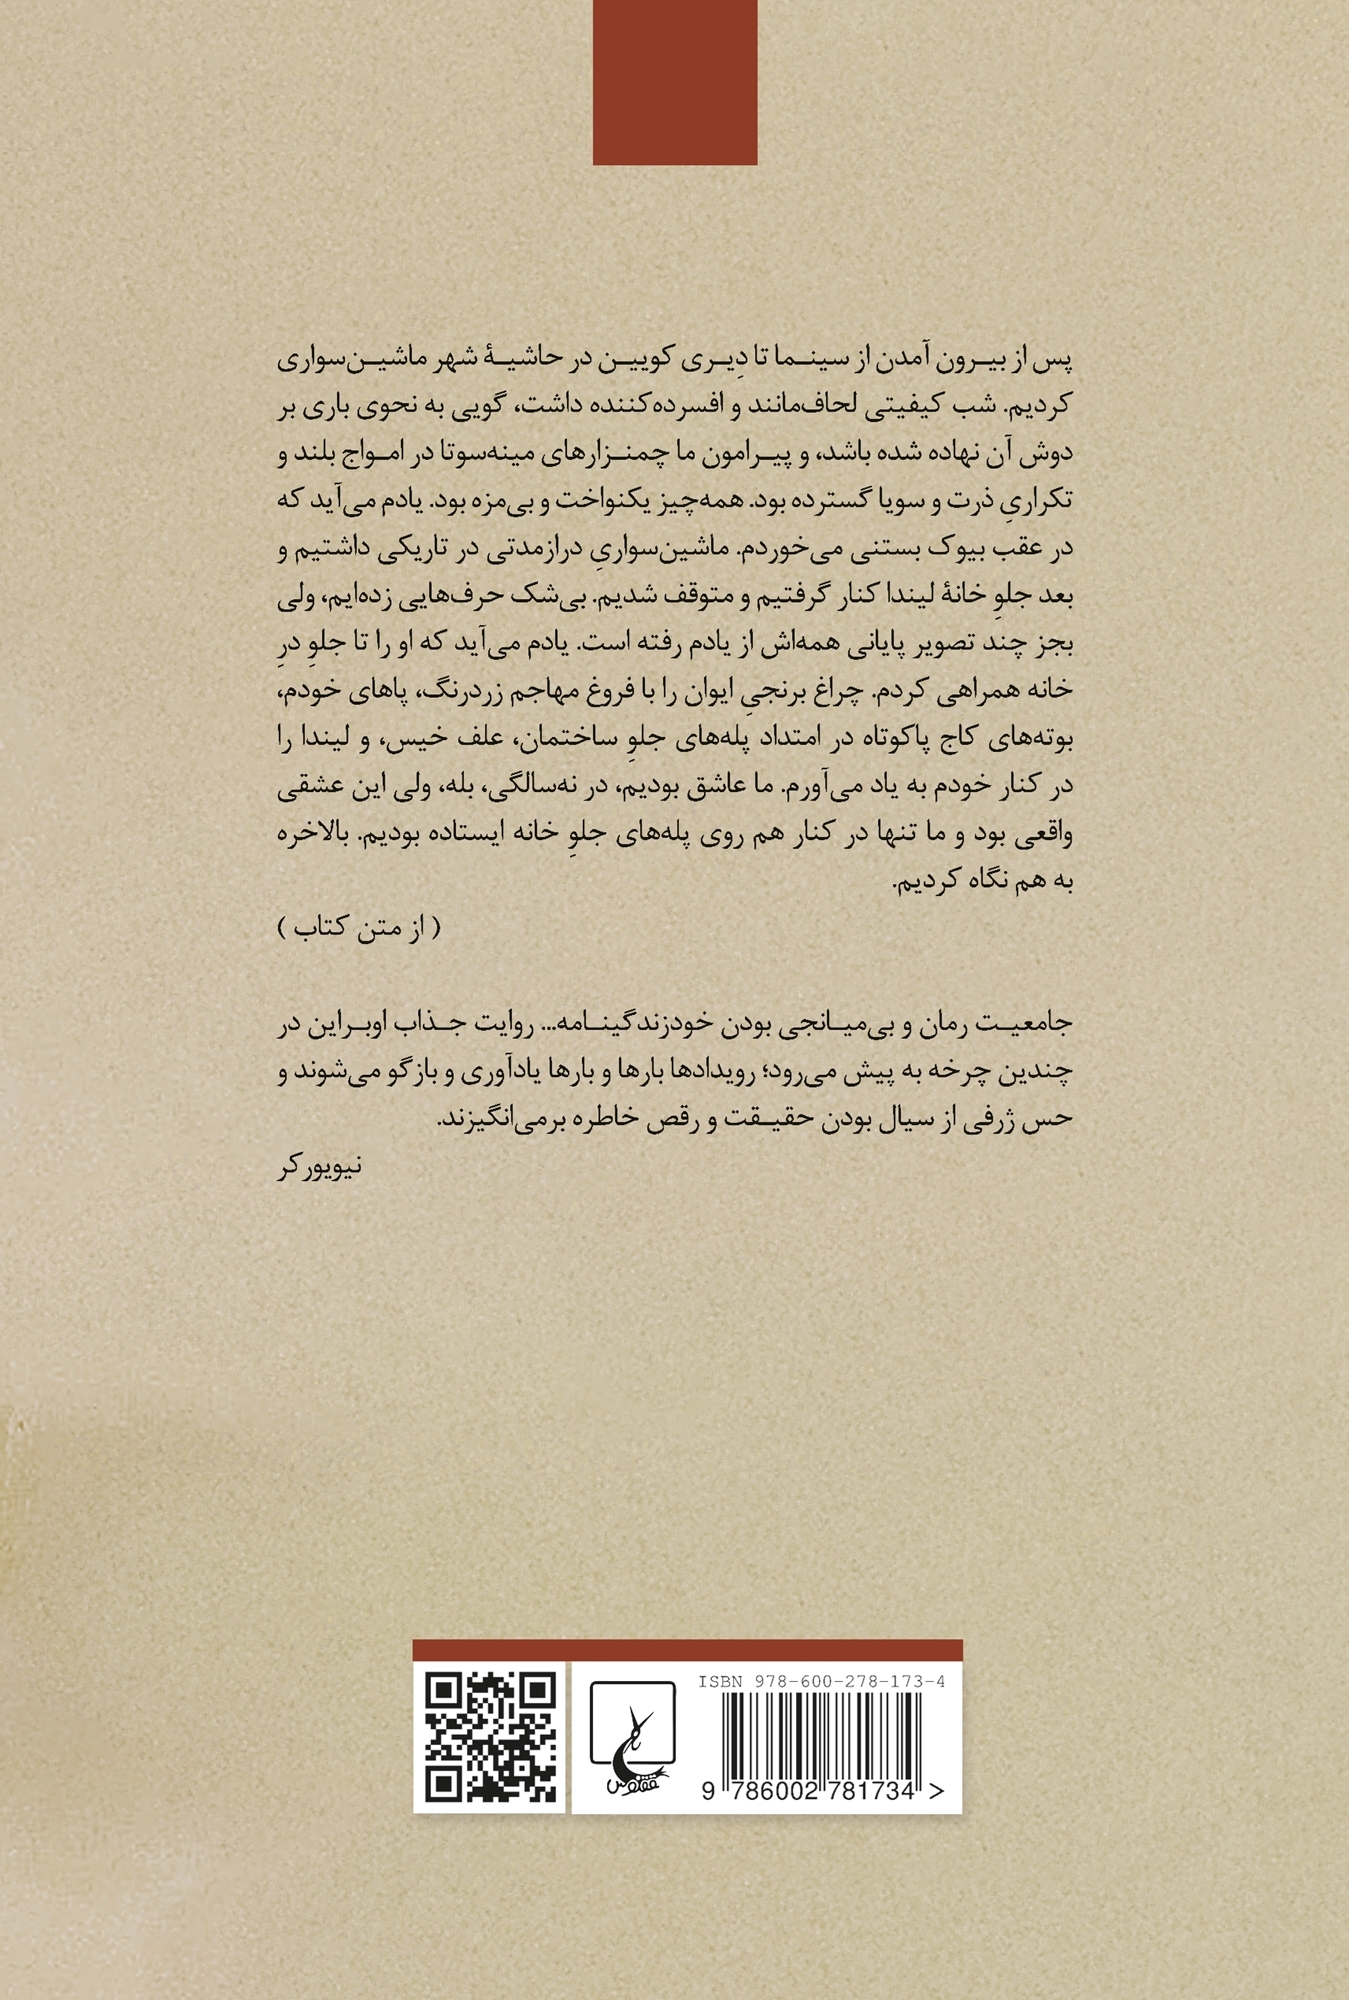 پس از بیرون آمدن از سینما تا دِیری کویین در حاشیهٔ شهر ماشین‌سواری
کردیم. شب کیفیتی لحاف‌مانند و افسرده‌کننده داشت، گویی به نحوی باری بر
دوش آن نهاده شده باشد، و پیرامون ما چمنزارهای مینه‌سوتا در امواج بلند و
تکراریِ ذرت و سویا گسترده بود. همه‌چیز یکنواخت و بی‌مزه بود. یادم می‌آید که
در عقب بیوک بستنی می‌خوردم. ماشین‌سواریِ درازمدتی در تاریکی داشتیم و
بعد جلوِ خانهٔ لیندا کنار گرفتیم و متوقف شدیم. بی‌شک حرف‌هایی زده‌ایم، ولی
بجز چند تصویر پایانی همه‌اش از یادم رفته است. یادم می‌آید که او را تا جلوِ درِ
خانه همراهی کردم. چراغ برنجیِ ایوان را با فروغ مهاجم زردرنگ، پاهای خودم،
بوته‌های کاج پاکوتاه در امتداد پله‌های جلوِ ساختمان، علف خیس، و لیندا را
در کنار خودم به یاد می‌آورم. ما عاشق بودیم، در نه‌سالگی، بله، ولی این عشقی
واقعی بود و ما تنها در کنار هم روی پله‌های جلوِ خانه ایستاده بودیم. بالاخره
به هم نگاه کردیم.
( از متن کتاب )
جامعیت رمان و بی‌میانجی بودن خودزندگینامه... روایت جذاب اوبراین در
چندین چرخه به پیش می‌رود؛ رویدادها بارها و بارها یادآوری و بازگو می‌شوند و
حس ژرفی از سیال بودن حقیقت و رقص خاطره برمی‌انگیزند.
نیویورکر
ISBN 978-600-278-173-4
ققنوس
9 786002 781734 >